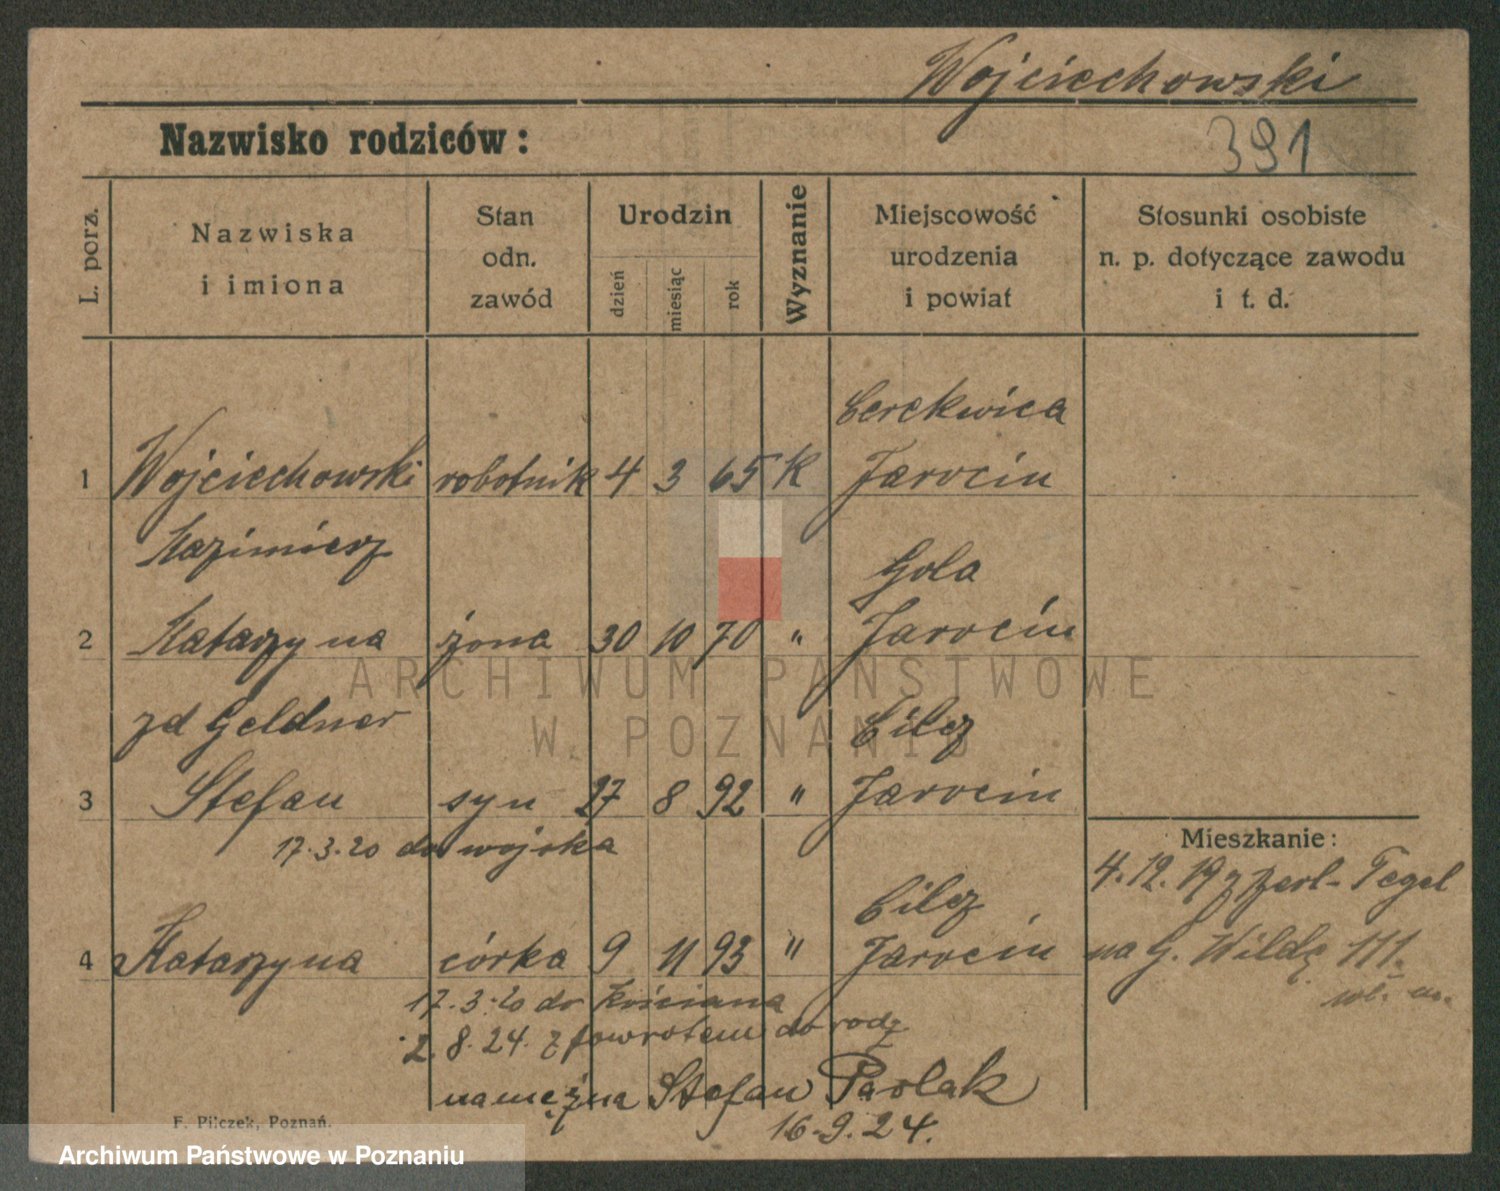 Wojciechowski
391
Nazwisko rodziców:
L. porz.
Nazwiska
i imiona
Stan
odn.
zawód
Urodzin
dzień
miesiąc
rok
Wyznanie
Miejscowość
urodzenia
i powiat
Stosunki osobiste
n. p. dotyczące zawodu
i t. d.
Cerekwica
1 Wojciechowski robotnik 4 3 65 K Jarocin
Kazimierz
Gola
2 Katarzyna żona 30 10 70 " Jarocin
zd Geldner
Cilcz
3 Stefan syn 27 8 92 " Jarocin
17.3.20 do wojska
Mieszkanie:
4.12.19 z Berl-Tegel
Cilcz
4 Katarzyna córka 9 11 93 " Jarocin
na G. Wildę 111.
17.3.20 do Kościana
2.8.24. z powrotem do rodz
zamężna Stefan Pawlak
16.9.24.
F. Pilczek, Poznań.
ARCHIWUM PAŃSTWOWE
W POZNANIU
Archiwum Państwowe w Poznaniu